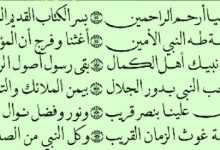 يا أرحم الراحمين ۞ بسر الكتاب القديم ال
ة طه النبي الأمين ۞ أغثنا وفرج أن المؤ
نبيك أهل الكمال ۞ بقى رسول أصول الر
حب النبي بدور الجلال ۞ بيمن الملائك والت
علينا بنصر قريب ۞ ونور وفضل نوال
ة غوث الزمان القريب ۞ وكل النبي من الص